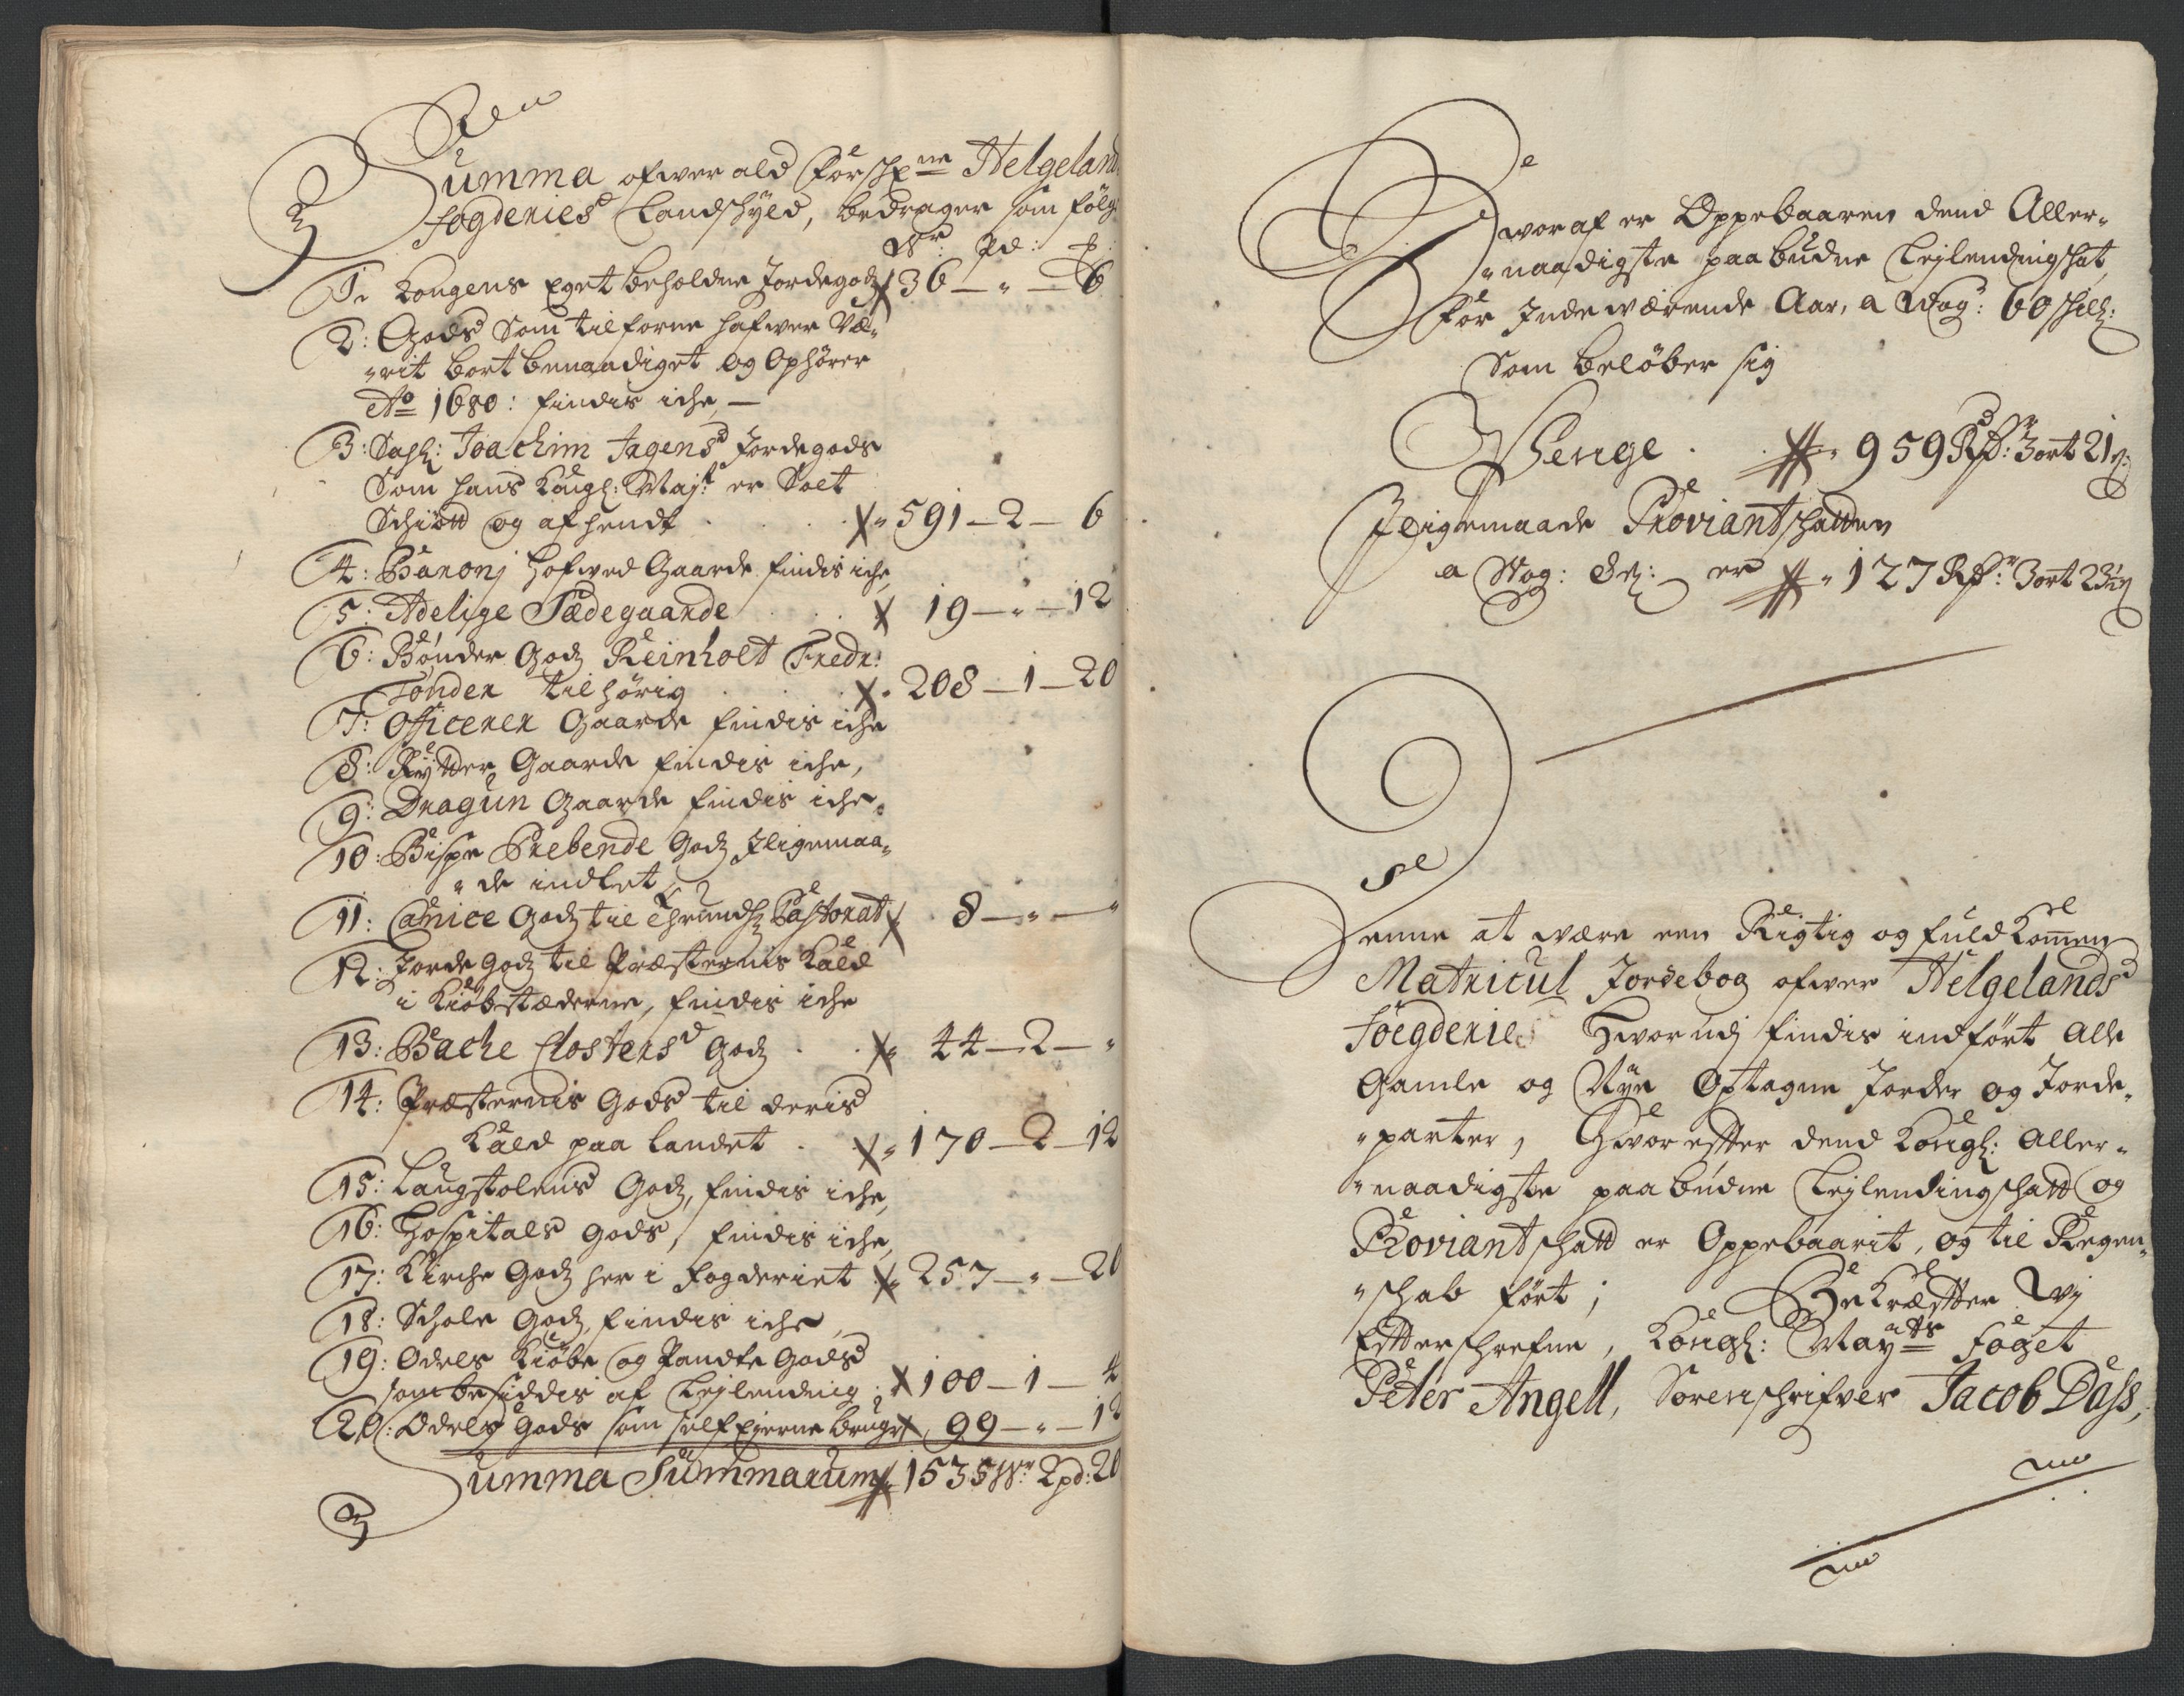 Summa ofwer ald Forschr:ne Helgeland
fogderies Landschyld, bedrager som følg:
Wr: Pd: ℔:
1: Kongens Eget beholdne Jordegodz 36 — " — 6
2: Gods Som tilforne hafwer Væ-
"rit bort benaadiget og Ophører
Ao 1680: findis iche, —
3: Sahl: Joachim Jagens Jordegods
Som hans Kongl: Maj:t er Solt
Schiøtt og afhendt " 591 — 2 — 6
4: Baronj Hofwed Gaarde findis iche,
5: Adelige Sædegaarde 19 — " — 12
6: Bønder Godz Reinholt Fredr:
Tønder tilhørig " 208 — 1 — 20
7: Officerer Gaarde findis iche
8: Rytter Gaarde findis iche,
9: Dragun Gaarde findis iche.
10: Bispe Prebende Godz Iligemaa-
"de indtet
11: Canice Godz til Pastorat 8 — " — "
12: Jorde Godz til Præsternis Kald
i Kiøbstæderne, findis iche
13: Bache Closters Godz " 44 — 2 — "
14: Præsternis Gods til deris
Kald paa Landet " 170 — 2 — 12
15: Laugstolens Godz, findis iche,
16: Hospitals Gods, findis iche,
17: Kirche Godz her i fogderiet " 257 — " — 20
18: Schole Godz, findis iche,
19: Odels Kiøbe og Pandte Gods
som besiddis af Lejlending 100 — 1 — 4
20: Odels Gods som self Ejerne bruger 99 — " — 12
Summa Summarum 1535 Wr 2 pd: 20
Hworaf er Oppebaaren dend Aller-
"naadigste paabudne Lejlendingshat,
For Indewærende Aar, a Wog: 60 schill:
Som beløber sig
Penge " 959 Rdr: 3 ort 21 s:
Iligemaade Proviantschatten
a Wog: 8 s: er " 127 Rdr: 3 ort 23 s
Denne at være een Rigtig og fuldkommen
Matricul Jordebog ofwer Helgelands
Foegderie Hworudj findis indført Alle
Gamle og Nye Optagne Jorder og Jorde-
"parter, Hvorefter dend Kongl: Aller-
"naadigste paabudne Lejlendingschatt og
Proviantschatt er Oppebaarit, og til Regen-
"schab ført; Bekræfter Wj
Efterschrefne, Kongl: Mayts foget
Peter Angell, Sorenschrifver Jacob Dass,